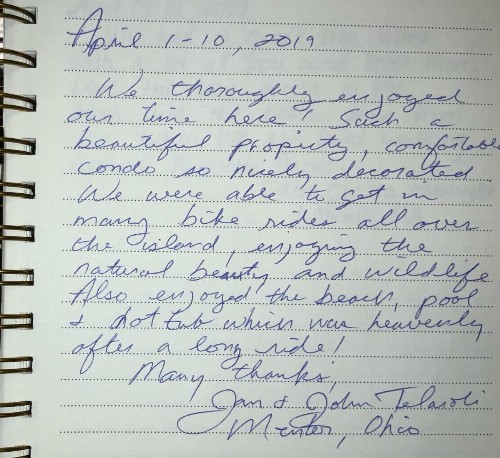 April 1-10, 2019
We thoroughly enjoyed
our time here! Such a
beautiful property, comfortable
condo so nicely decorated.
We were able to get in
many bike rides all over
the island, enjoying the
natural beauty and wildlife.
Also enjoyed the beach, pool
& hot tub which was heavenly
after a long ride!
Many thanks,
Jan & John
Mentor, Ohio